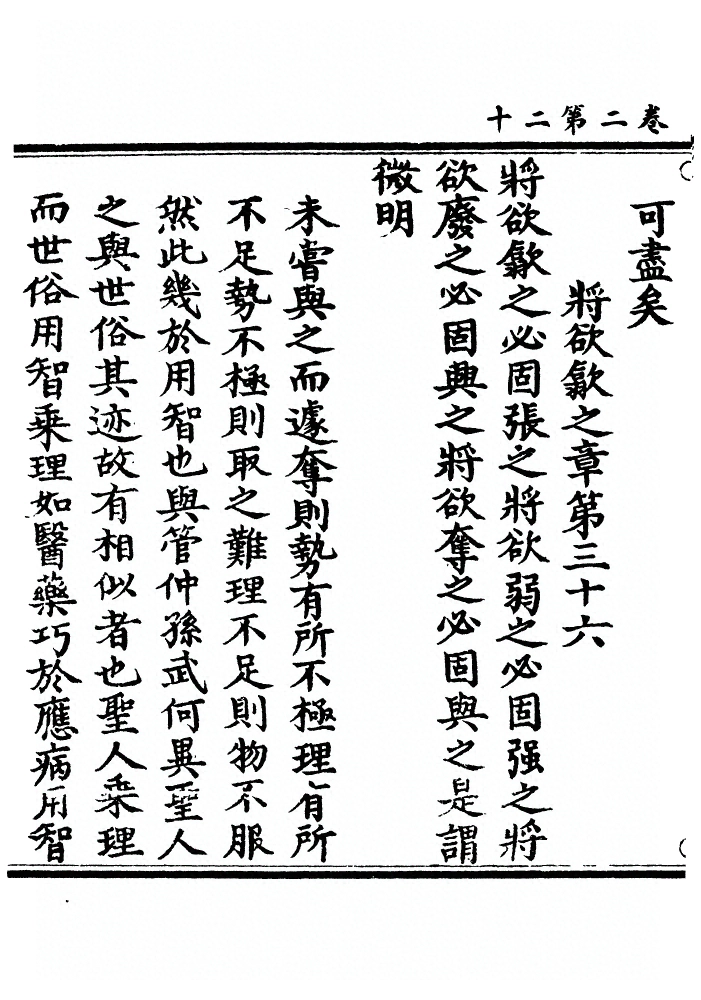 卷二第二十
可盡矣
將欲歙之章第三十六
將欲歙之必固張之將欲弱之必固强之將
欲廢之必固興之將欲奪之必固與之是謂
微明
未嘗與之而遽奪則勢有所不極理有所
不足勢不極則取之難理不足則物不服
然此幾於用智也與管仲孫武何異聖人
之與世俗其迹故有相似者也聖人乘理
而世俗用智乘理如醫藥巧於應病用智